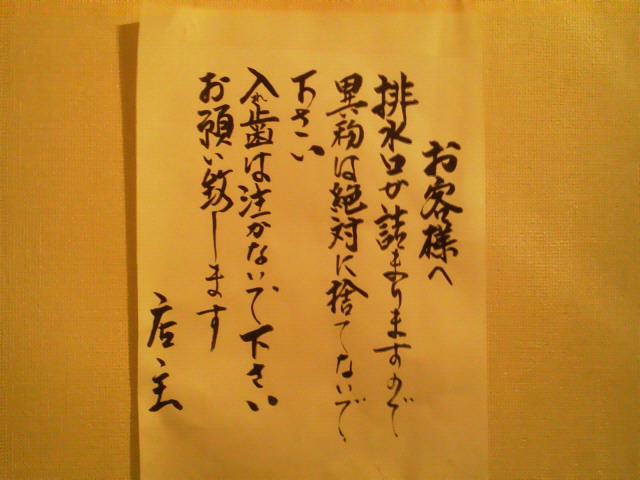 お客様へ
排水口が詰まりますので
異物は絶対に捨てないで
下さい
入れ歯は注がないで下さい
お願い致します
店主